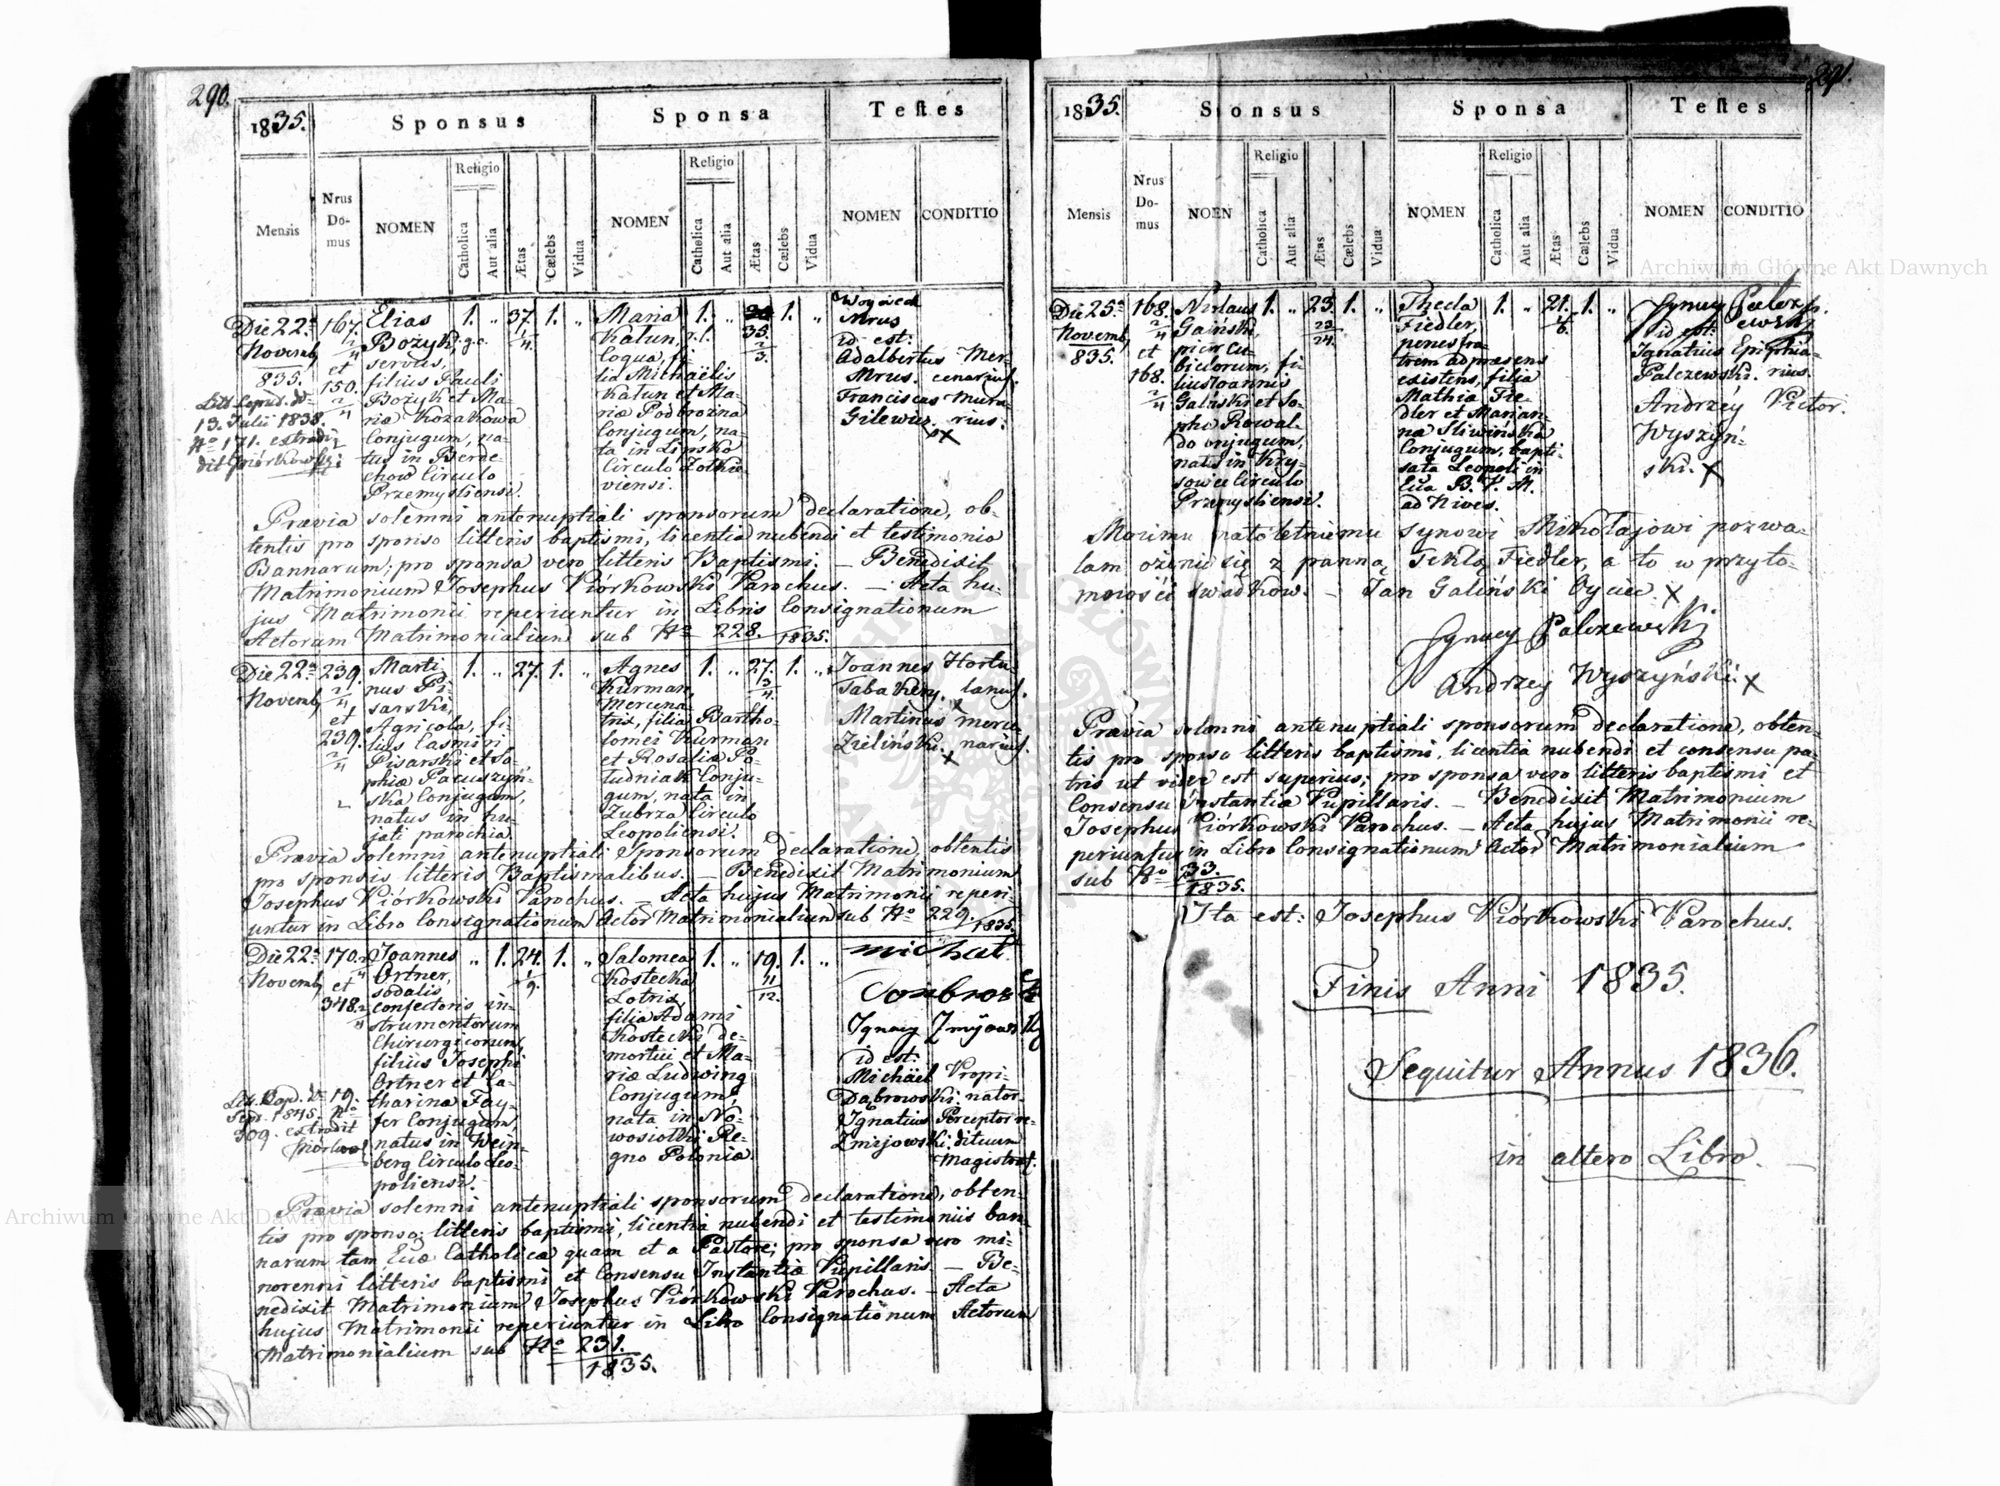 290.
1835.
Sponsus
Sponsa
Testes
Mensis
Nrus Domus
NOMEN
Religio
Catholica
Aut alia
Ætas
Cælebs
Vidua
NOMEN
Religio
Catholica
Aut alia
Ætas
Cælebs
Vidua
NOMEN
CONDITIO
Die 22ª
Novemb
835.
167.
et
150.
Elias
Bozyk, g.c.
servus,
filius Pauli
Bozyk et Ma-
riæ Kozakowa
Conjugum, na-
tus in Berde-
chow Circulo
Przemysliensi.
1. „ 37. 1. „
Maria
Katun, r.l.
loqua, fi-
lia Michaëlis
Katun et Ma-
riæ Podbrozna
Conjugum, na-
ta in Lipsko
Circulo Zolkie-
viensi.
1. „ 35. 1. „
Woyciech
Mrus
id est:
Adalbertus Mer-
Mrus. cenarius.
Franciscus Mura-
Gilewicz rius.
13. Julii 1838.
Nº 171. extradi-
dit Piórkowski
Prævia solemni antenuptiali sponsorum declaratione, ob-
tentis pro sponso litteris baptismi, licentia nubendi et testimonio
Bannarum; pro sponsa vero litteris Baptismi. — Benedixit
Matrimonium Josephus Piórkowski Parochus. — Acta hu-
jus Matrimonii reperiuntur in Libris Consignationum
Actorum Matrimonialium sub Nº 228. 1835.
Die 22ª
Novemb
239.
et
239.
Marti-
nus Pi-
sarski,
Agricola, fi-
lius Casimiri
Pisarski et So-
phiæ Pacuszyń-
ska Conjugum,
natus in hu-
jati parochia.
1. „ 27. 1. „
Agnes
Kurman,
Mercena-
trix, filia Bartho-
lomei Kurman
et Rosaliæ Po-
tudniak Conju-
gum, nata in
Zubrza Circulo
Leopoliensi.
1. „ 27. 1. „
Joannes Hortu-
Tabakery. lanus.
Martinus merce-
Zieliński. narius.
Prævia solemni antenuptiali Sponsorum declaratione, obtentis
pro sponsis litteris Baptismalibus. — Benedixit Matrimonium
Josephus Piórkowski Parochus. — Acta hujus Matrimonii reperi-
untur in Libro Consignationum Actor Matrimonialium sub Nº 229. 1835.
Die 22ª
Novemb
170.
et
348.
Joannes
Ortner,
sodalis
confectoris in-
strumentorum
Chirurgicorum,
filius Josephi
Ortner et Ca-
tharinæ Fay-
fer Conjugum,
natus in Wein-
berg Circulo Leo-
poliensi.
„ 1. 24. 1. „
Salomea
Kostecka
Lotrix
filia Adami
Kostecki de-
mortui et Ma-
riæ Ludwing
Conjugum,
nata in No-
wosiolki Re-
gno Poloniæ
1. „ 19. 1. „
michał
Dombrowski
Ignacy Zmijowski
id est:
Michäel Propi-
Dąbrowski. nator.
Ignatius Perceptor re-
Zmijowski. dituum
Magistrat.
19.
Sept. 1845. Nº
309. extradit
Prævia solemni antenuptiali sponsorum declaratione, obten-
tis pro sponso litteris baptismi, licentia nubendi et testimoniis ban-
narum tam Ecæ Catholicæ quam et a Pastore; pro sponsa vero mi-
norenni litteris baptismi et Consensu Instantiæ Pupillaris. — Be-
nedixit Matrimonium Josephus Piórkowski Parochus. — Acta
hujus Matrimonii reperiuntur in Libro Consignationum Actorum
Matrimonialium sub Nº 231. 1835.
291.
1835.
Sponsus
Sponsa
Testes
Mensis
Nrus Domus
NOMEN
Religio
Catholica
Aut alia
Ætas
Cælebs
Vidua
NOMEN
Religio
Catholica
Aut alia
Ætas
Cælebs
Vidua
NOMEN
CONDITIO
Die 25ª
Novemb
835.
168.
et
168.
Nicolaus
Galiński,
pictor Cu-
biclorum, fi-
lius Joannis
Galiński et So-
phiæ Kowal-
do Conjugum,
natus in Kry-
sowice Circulo
Przemysliensi.
1. „ 23. 1. „
Thecla
Fiedler,
penes fra-
trem ad præsens
existens, filia
Mathiæ Fie-
dler et Marian-
næ Sliwińska
Conjugum, bapti-
sata Leopoli in
Ecca B. V. M.
ad Nives.
1. „ 21. 1. „
Ignacy Palcz-
ewski
id est:
Ignatius Epiphia-
Palczewski. rius.
Andrzéy Pictor.
Wyszyń-
ski. X
Moiemu małoletniemu synowi Mikołajowi pozwa-
lam ożenić się z panną Teklą Fiedler, a to w przyto-
mności świadków. — Jan Galiński Oyciec. X
Ignacy Palczewski
Andrzey Wyszyński. X
Prævia solemni antenuptiali sponsorum declaratione, obten-
tis pro sponso litteris baptismi, licentia nubendi et consensu pa-
tris ut videre est superius; pro sponsa vero litteris baptismi et
Consensu Instantiæ Pupillaris. — Benedixit Matrimonium
Josephus Piórkowski Parochus. — Acta hujus Matrimonii re-
periuntur in Libro Consignationum Actor Matrimonialium
sub Nº 233. 1835.
Ita est: Josephus Piórkowski Parochus.
Finis Anni 1835.
Sequitur Annus 1836.
in altero Libro. —
Archiwum Główne Akt Dawnych
Archiwum Główne Akt Dawnych